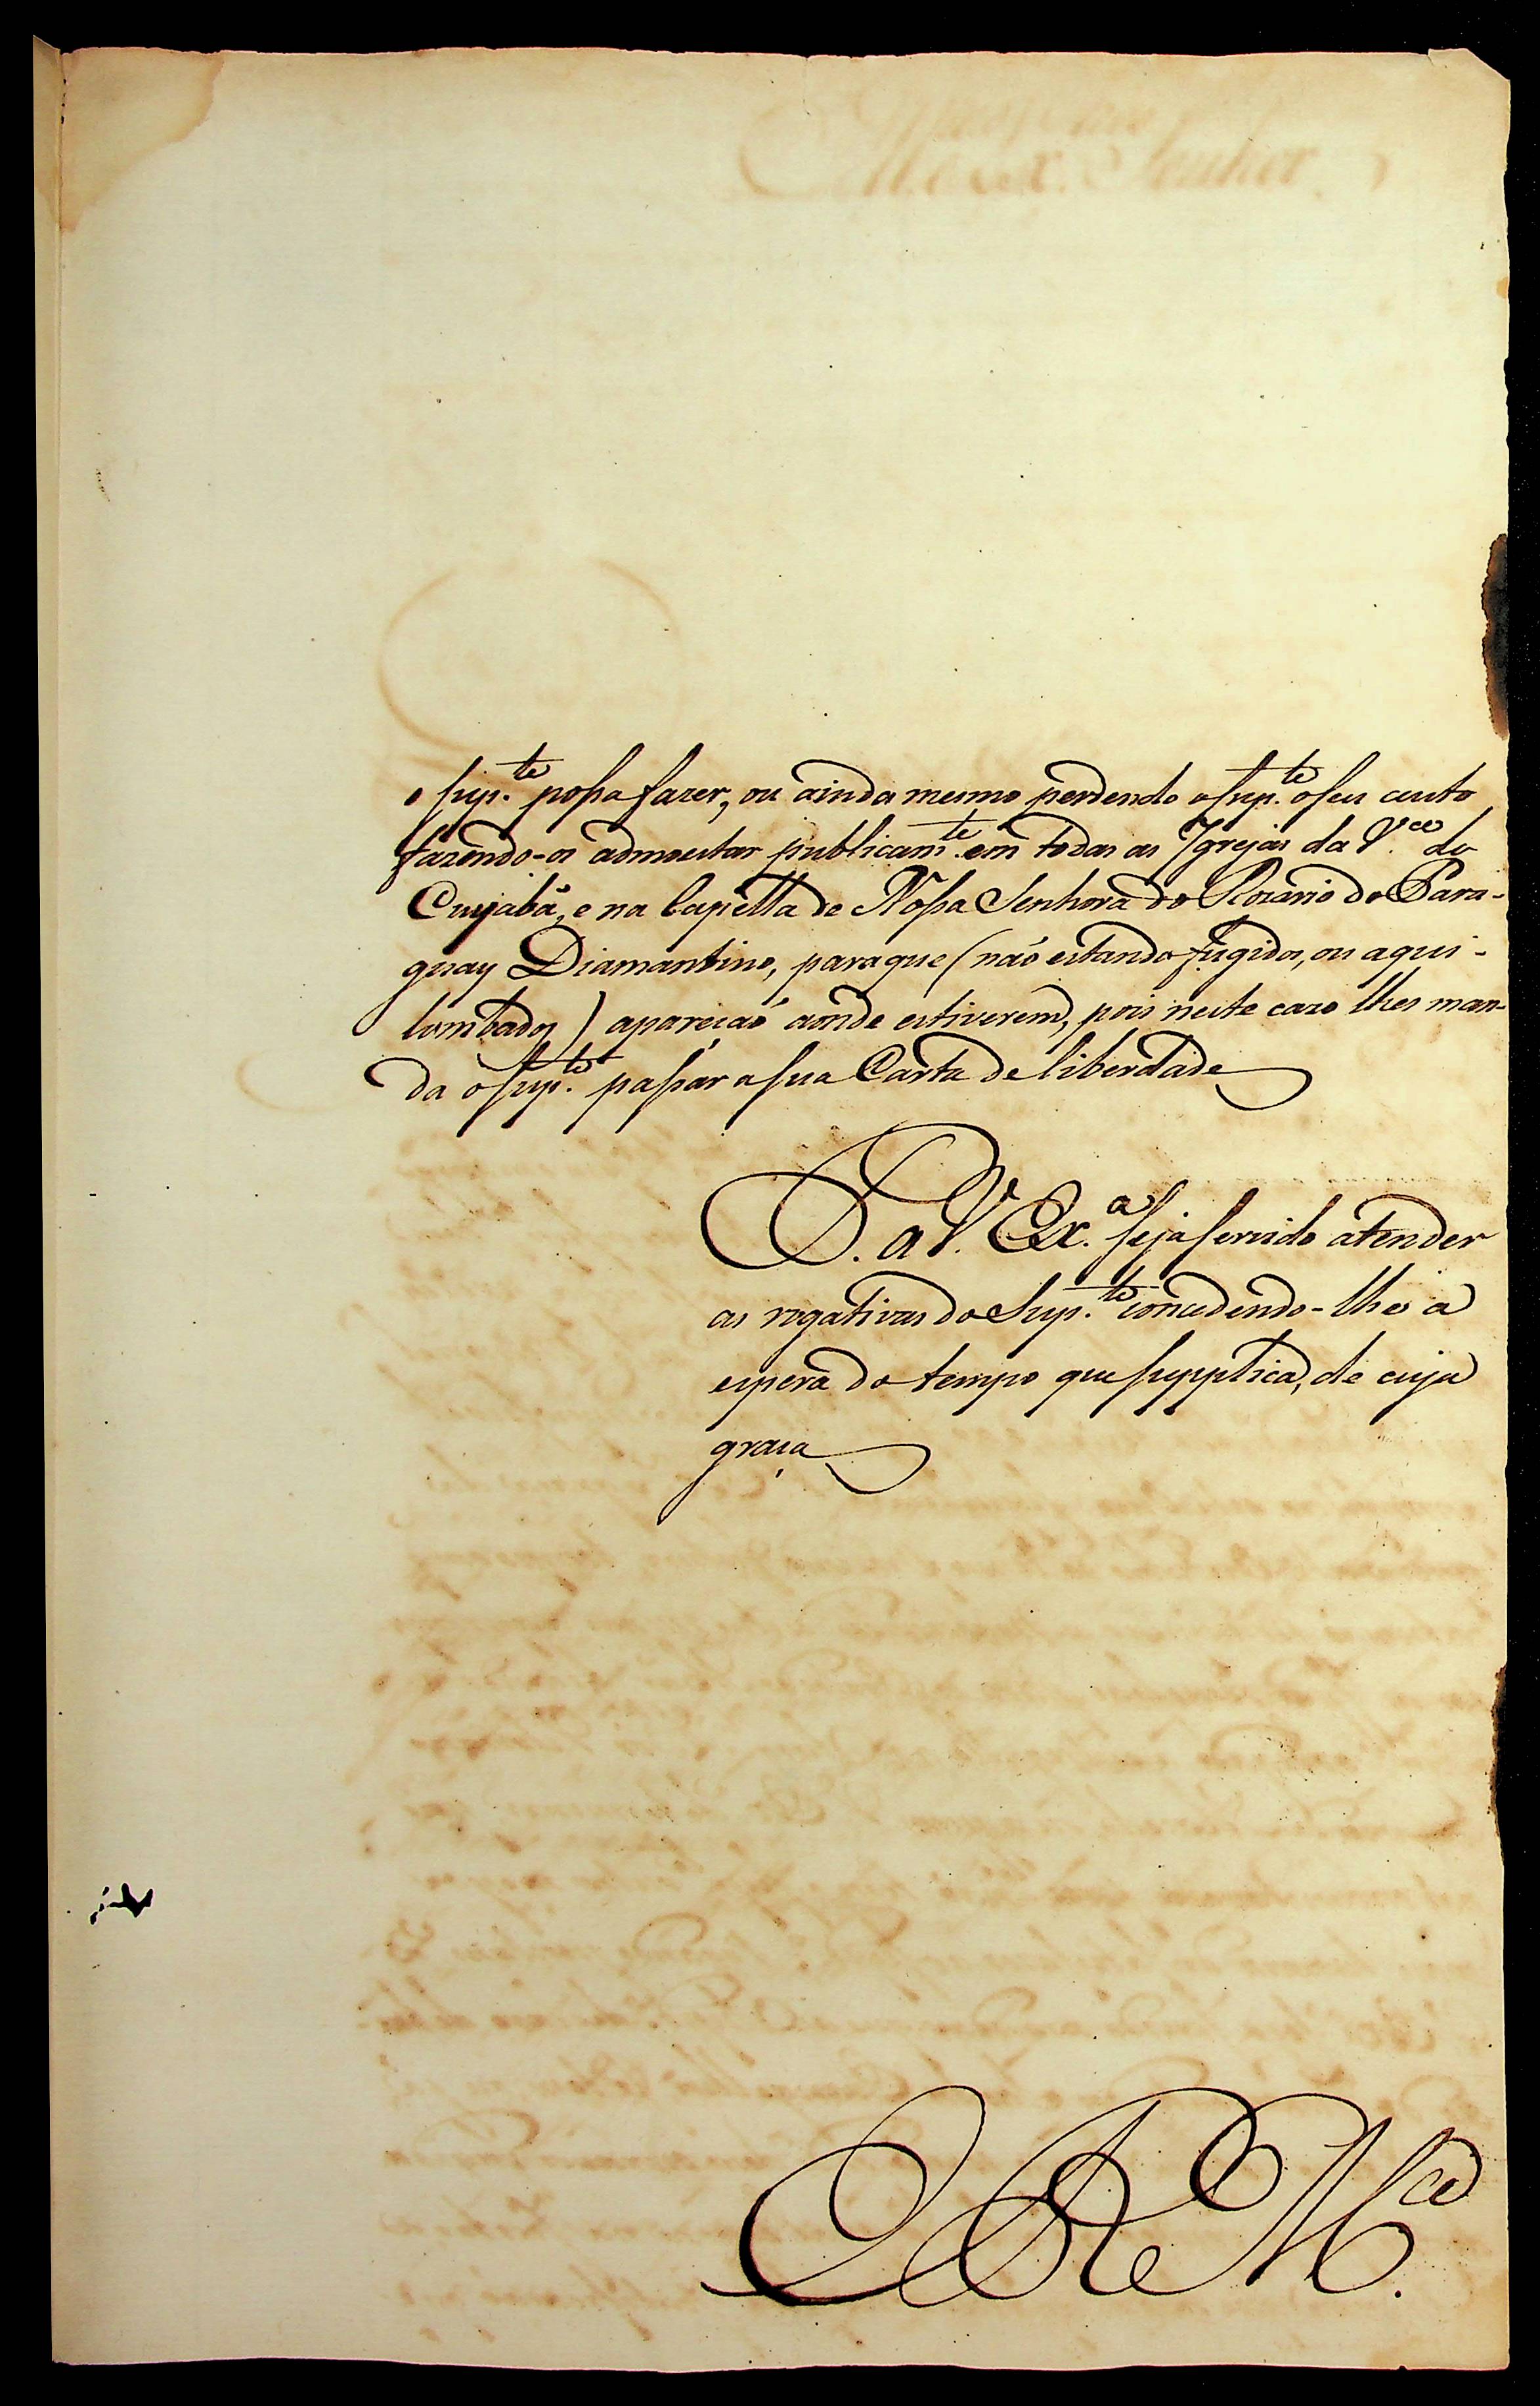 o sup.te possa fazer, ou ainda mesmo perdendo o sup.te o seu custo
fazendo-os admoestar publicam.te em todas as Igrejas da V.ª do
Cuyabá, e na Capella de Nossa Senhora do Rozario do Para-
guay Diamantino, paraque (naõ estando fugidos, ou aqui-
lombados) apareçaõ aonde estiverem, pois neste cazo lhes man-
da o sup.te passar a sua Carta de liberdade
P. a V. Ex.ª seja servido atender
as rogativas do Sup.te concedendo-lhe a
espera do tempo que supplica, de cuja
graça
E R M.ce